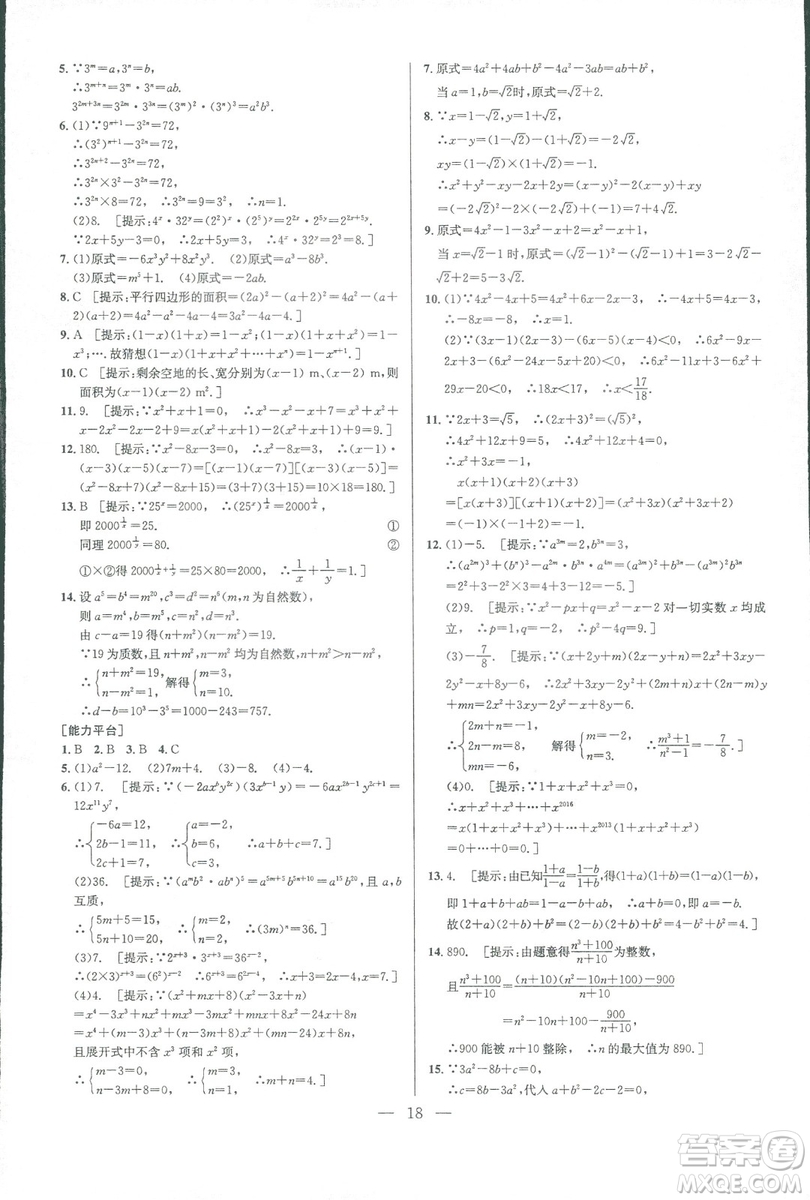 5. ∵3ᵐ=a,3ⁿ=b,
∴3ᵐ⁺ⁿ=3ᵐ·3ⁿ=ab.
3²ᵐ⁺³ⁿ=(3ᵐ)²·(3ⁿ)³=a²b³.
6. (1)∵9ⁿ⁺¹-3²ⁿ=72,
∴(3²)ⁿ⁺¹-3²ⁿ=72,
∴3²ⁿ⁺²-3²ⁿ=72,
∴3²ⁿ×3²-3²ⁿ=72,
∴3²ⁿ×8=72, ∴3²ⁿ=9=3², ∴n=1.
(2)8. [提示:4ˣ·32ʸ=(2²)ˣ·(2⁵)ʸ=2²ˣ·2⁵ʸ=2²ˣ⁺⁵ʸ.
∵2x+5y-3=0, ∴2x+5y=3, ∴原式=2³=8.]
7. (1)原式=-6x³y+8x²y². (2)原式=a³-8b³.
(3)原式=m⁵+1. (4)原式=-2ab.
8. C [提示:平行四边形的面积=(2a)²-(a+2)²=4a²-(a+
2)(a+2)=4a²-a²-4a-4=3a²-4a-4.]
9. A [提示:(1-x)(1+x)=1-x²;(1-x)(1+x+x²)=1-
x³;….故猜想(1-x)(1+x+x²+…+xⁿ)=1-xⁿ⁺¹.]
10. C [提示:剩余空地的长、宽分别为(x-1) m、(x-2) m,则
面积为(x-1)(x-2) m².]
11. 9. [提示:∵x²+x+1=0, ∴x³-x²-x+7=x³+x²+x-
2x²-2x-2+9=x(x²+x+1)-2(x²+x+1)+9=9.]
12. 180. [提示:∵x²-8x-3=0, ∴x²-8x=3, ∴(x-1)·
(x-3)(x-5)(x-7)=[(x-1)(x-7)][(x-3)(x-5)]=
(x²-8x+7)(x²-8x+15)=(3+7)(3+15)=10×18=180.]
13. B [提示:∵25ˣ=2000, ∴(25ˣ)^(1/x)=2000^(1/x),
即2000^(1/x)=25. ①
同理2000^(1/y)=80. ②
①×②得2000^(1/x+1/y)=25×80=2000, ∴1/x+1/y=1.]
14. 设a⁵=b⁴=m²⁰,c³=d²=n⁶(m,n均为自然数),
则a=m⁴,b=m⁵,c=n²,d=n³.
由c-a=19得(n+m²)(n-m²)=19.
∵19为质数,且n+m²,n-m²均为自然数,n+m²>n-m²,
∴{n+m²=19,n-m²=1,解得{m=3,n=10.
∴d-b=10³-3⁵=1000-243=757.
[能力平台]
1. B 2. B 3. B 4. C
5. (1)a²-12. (2)7m+4. (3)-6. (4)-2.
6. (1)7. [提示:∵(-2axᵇy²ᶜ)(3xᵇ⁻¹y)=-6ax²ᵇ⁻¹y²ᶜ⁺¹=
12x¹¹y⁷,
∴{-6a=12,2b-1=11,2c+1=7,∴{a=-2,b=6,c=3,∴a+b+c=7.]
(2)36. [提示:∵(aᵐb²·abⁿ)⁵=a⁵ᵐ⁺⁵b⁵ⁿ⁺¹⁰=a¹⁵b²⁰,且a,b
互质,
∴{5m+5=15,5n+10=20,∴{m=2,n=2,∴(3m)ⁿ=36.]
(3)7. [提示:∵2ˣ⁺³·3ˣ⁺³=36ˣ⁻²,
∴(2×3)ˣ⁺³=(6²)ˣ⁻², ∴x+3=2(x-2), ∴x=7.]
(4)4. [提示:∵(x²+mx+8)(x²-3x+n)
=x⁴-3x³+nx²+mx³-3mx²+mnx+8x²-24x+8n
=x⁴+(m-3)x³+(n-3m+8)x²+(mn-24)x+8n,
且展开式中不含x³项和x²项,
∴{m-3=0,n-3m+8=0,∴{m=3,n=1,∴m+n=4.]
7. 原式=4a²+4ab+b²-4a²-4ab=b²,
当a=1,b=√2时,原式=√2+2.
8. ∵x=1-√2,y=1+√2,
∴x-y=(1-√2)-(1+√2)=-2√2,
xy=(1-√2)(1+√2)=-1.
∴x²+y²-xy-2x+2y=(x-y)²-2(x-y)+xy=
(-2√2)²-2×(-2√2)+(-1)=7+4√2.
9. 原式=4x²-1-3x²+3x-2x-1=x²+x-2,
当x=√2-1时,原式=(√2-1)²+(√2-1)-2=3-2√2+
√2-3=-√2.
10. (1)∵4x²-4x+1-(4x²-9)=2, ∴4x²-4x+1-4x²+
9=2, ∴-4x=-8, ∴x=2.
(2)∵(3x-4)(2x-3)-(6x-5)(x-4)<0, ∴6x²-9x-
8x+12-(6x²-24x-5x+20)<0, ∴6x²-17x+12-6x²+
29x-20<0, ∴12x-8<0, ∴x<17/18.
11. ∵2x+3=√5, ∴(2x+3)²=(√5)²,
∴4x²+12x+9=5, ∴4x²+12x=-4,
∴x²+3x=-1,
x(x+1)(x+2)(x+3)
=[x(x+3)][(x+1)(x+2)]=(x²+3x)(x²+3x+2)
=(-1)×(-1+2)=-1.
12. (1)-5. [提示:∵a³ᵐ=2,b³ⁿ=3,
∴(a³ᵐ)²+(bⁿ)³-a²ᵐ·bⁿ·a⁴ᵐ·b²ⁿ=(a³ᵐ)²+b³ⁿ-(a³ᵐ)²·
b³ⁿ=2²+3-2²×3=4+3-12=-5.]
(2)9. [提示:∵x²-px+q=x²-x-2对一切实数x均成
立, ∴p=1,q=-2, ∴p²-4q=9.]
(3)-7/8. [提示:∵(x+2y+m)(2x-y+n)=2x²+3xy-
2y²-x+8y-6, ∴2x²+3xy-2y²+(2m+n)x+(2n-
m)y+mn=2x²+3xy-2y²-x+8y-6,
∴{2m+n=-1,2n-m=8,mn=-6,解得{m=-2,n=3.∴(m³+1)/(n²-1)=-7/8.]
(4)0. [提示:∵1+x+x²+x³=0,
∴x+x²+x³+…+x²⁰¹⁶
=x(1+x+x²+x³)+…+x²⁰¹³(1+x+x²+x³)
=0+0+…+0=0.]
13. 4. [提示:由已知(1+a)/(1-a)=(1-b)/(1+b),得(1+a)(1+b)=(1-a)(1-b),
即1+a+b+ab=1-a-b+ab, ∴a+b=0.
故(2+a)(2+b)+ab... ]
14. 890. [提示:由题意得(n³+100)/(n+10)为整数,
且(n³+100)/(n+10)=((n+10)(n²-10n+100)-900)/(n+10)
=n²-10n+100-900/(n+10),
∴900能被n+10整除, ∴n的最大值为890.]
15. ∵3a²-8b+c=0,
∴c=8b-3a²,代入
— 18 —
答案圈
MXQE.COM